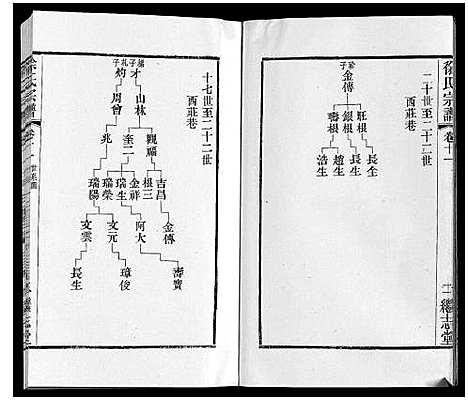 徐氏宗譜
卷十二
二十世至二十二世
西莊巷
金傳
旺根
銀根
壽根
長全
長生
趙生
浩生
繼志堂
十七世至二十二世
西莊巷
才
灼
山林
周曾
觀福
奎二
兆
吉昌
根三
金祥
瑞生
瑞榮
瑞陽
金傳
阿大
文元
文雲
壽寶
璋俊
長生